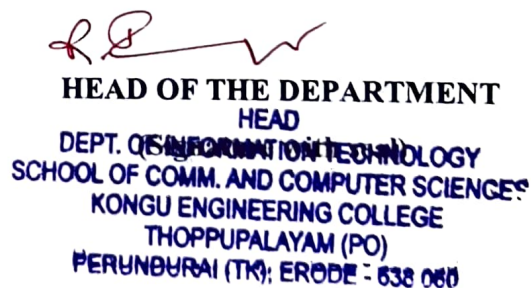 HEAD OF THE DEPARTMENT
HEAD
DEPT. OF INFORMATION TECHNOLOGY
(Signature with seal)
SCHOOL OF COMM. AND COMPUTER SCIENCES
KONGU ENGINEERING COLLEGE
THOPPUPALAYAM (PO)
PERUNDURAI (TK); ERODE - 638 060